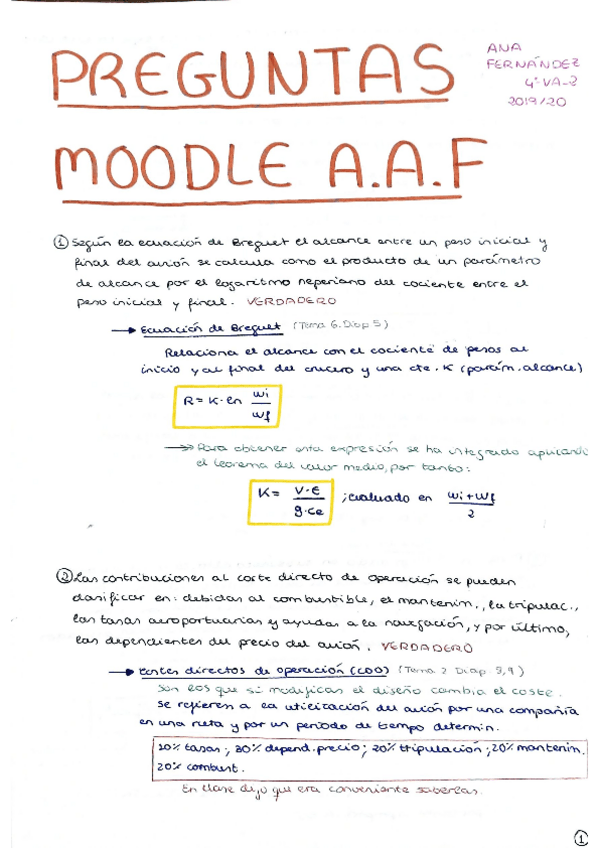 PREGUNTAS
MOODLE A.A.F
ANA
FERNÁNDEZ
4º VA-2
2019/20
① Según la ecuación de Breguet el alcance entre un peso inicial y
final del avión se calcula como el producto de un parámetro
de alcance por el logaritmo neperiano del cociente entre el
peso inicial y final. VERDADERO
→ Ecuación de Breguet (Tema 6. Diap 5)
Relaciona el alcance con el cociente de pesos al
inicio y al final del crucero y una cte. K (parám. alcance)
R = K · ln wi/wf
→ Para obtener esta expresión se ha integrado aplicando
el teorema del valor medio, por tanto:
K = V·E/g·ce ; evaluado en wi+wf/2
② Las contribuciones al coste directo de operación se pueden
clasificar en: debidas al combustible, el mantenim., la tripulac.,
las tasas aeroportuarias y ayudas a la navegación, y por último,
las dependientes del precio del avión. VERDADERO
→ Costes directos de operación (COO) (Tema 2 Diap. 8,9)
Son los que si modificas el diseño cambia el coste.
Se refieren a la utilización del avión por una compañía
en una ruta y por un período de tiempo determin.
10% tasas ; 30% depend. precio ; 20% tripulación ; 20% mantenim.
20% combust.
En clase dijo que era conveniente saberlas.
①